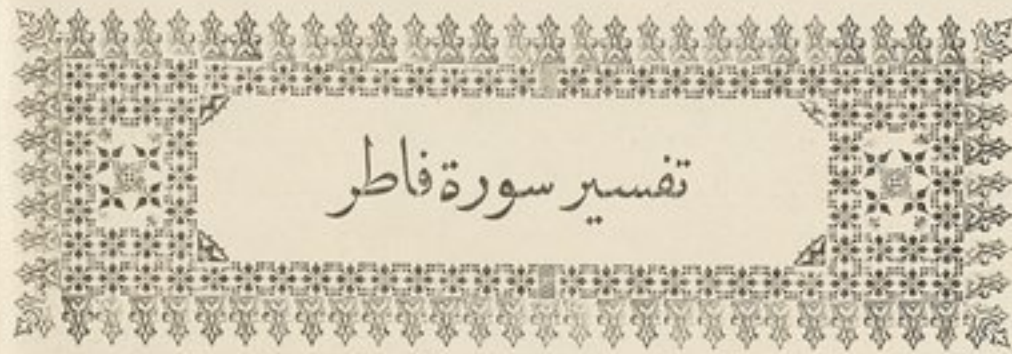 تفسير سورة فاطر